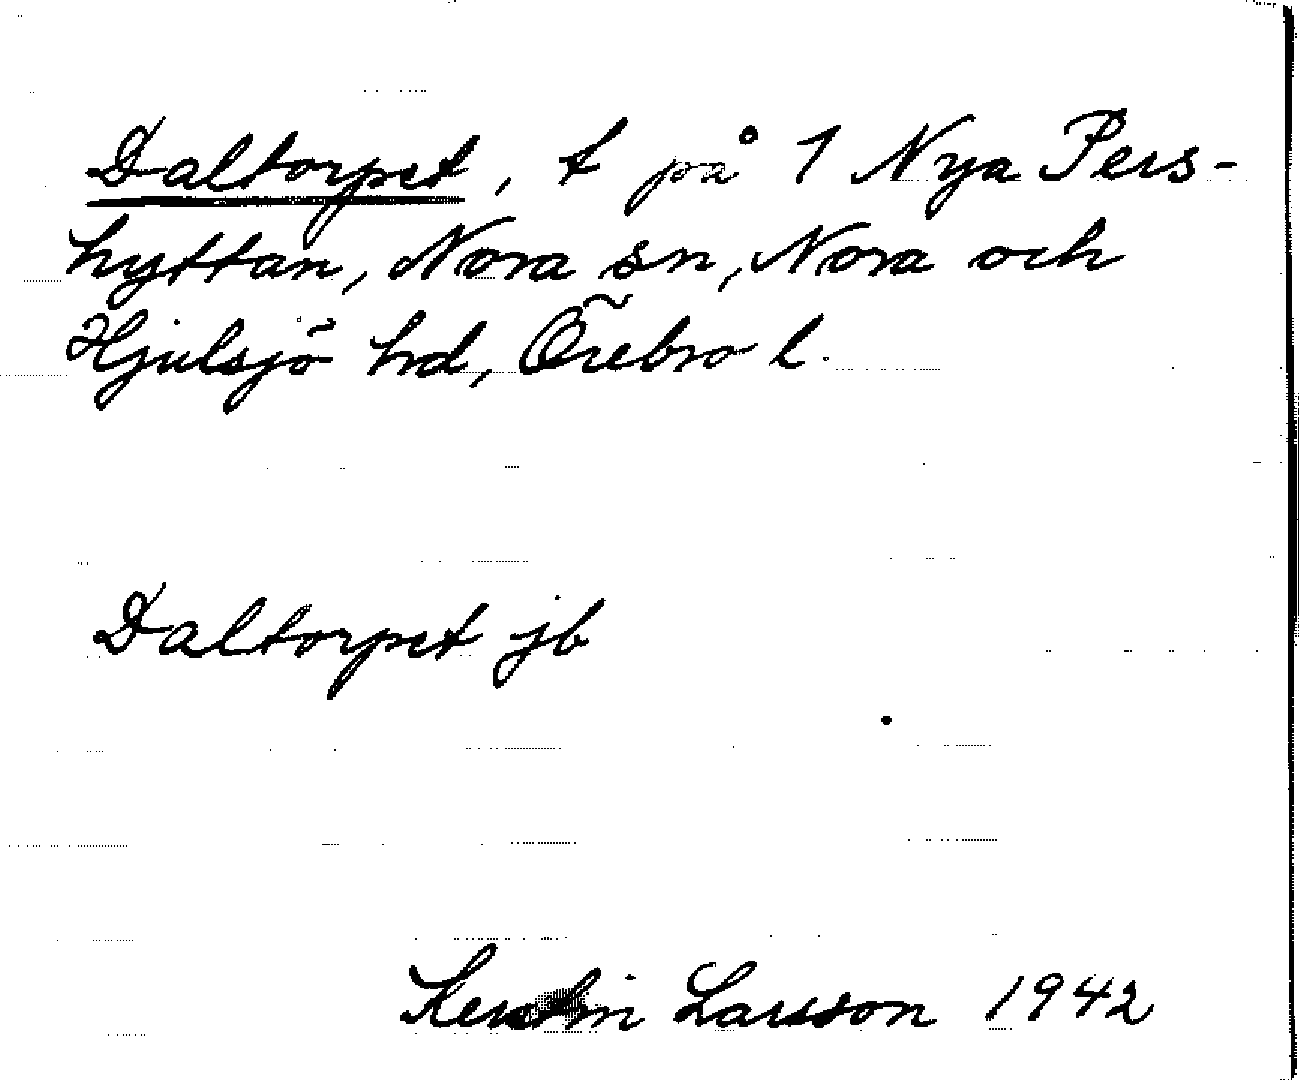 Daltorpet, t på 1 Nya Pers-
hyttan, Nora sn, Nora och
Hjulsjö hrd, Örebro l.
Daltorpet jb
Kerstin Larsson 1942